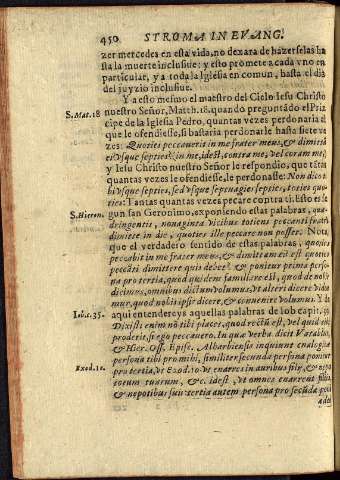 450 STROMA IN EVANG.
zer mercedes en esta vida, no dexara de hazerselas ha
sta la muerte inclusiue: y esto promete a cada vno en
particular, y a toda la Iglesia en comun, hasta el dia
del juyzio inclusiue.
Y a esto mesmo el maestro del Cielo Iesu Christo
S. Mat. 18
nuestro Señor, Matth. 18. quando preguntãdo el Prĩ
cipe de la Iglesia Pedro, quantas vezes perdonaria al
que le ofendiesse, si bastaria perdonarle hasta siete ve
zes: Quoties peccauerit in me frater meus, & dimittã
ei vsque septies? in me, id est, contra me, vel coram me;
y Iesu Christo nuestro Señor le respondio, que tãtas
quantas vezes le ofendiesse, le perdonasse: Non dico ti
bi vsque septies, sed vsque septuagies septies, toties quo-
ties: Tantas quantas vezes pecare contra ti. Esto es se
S. Hieron.
gun san Geronimo, exponiendo estas palabras, qua-
dringentis, nonaginta vicibus toties peccanti fratri
dimitte in die, quoties ille peccare non posset. Nota,
que el verdadero sentido de estas palabras, quoties
peccabit in me frater meus, & dimittam ei? est quoties
peccãti dimittere quis debet? & ponitur prima perso-
na pro tertia, quod quidem familiare est, quod de nobis
dicimus, omnibus dictum volumus, vt alteri dicere vide
mur, quod nobis ipsis dicere, & conuenire volumus. Y de
Iob. c. 35.
aqui entendereys aquellas palabras de Iob capit. 35.
Dixisti enim nõ tibi placet, quod rectũ est, vel quid tibi
proderit, si ego peccauero. In quæ verba dicit Vatablus,
& Hier. Oss. Episc. Albarbiensis inquiunt enalogia
persona tibi pro mihi, similiter secunda persona ponitur
Exod. 10.
pro tertia, vt Exod. 10. vt enarres in auribus filij, & nepo
tum tuorum, &c. id est, vt omnes enarrent filijs,
& nepotibus suis tertia autem persona pro secũda